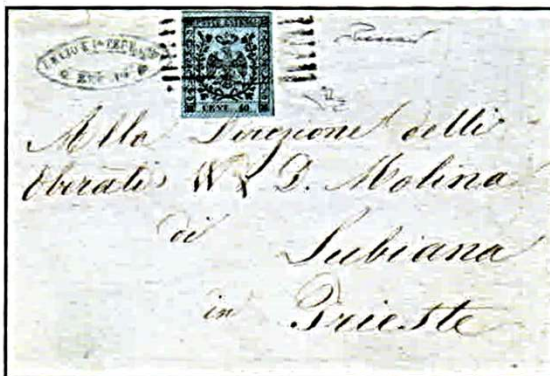 POSTE ESTENSI
CENT. 40
Alla Direzione delli
Oberati W & D. Molina
di
Lubiana
in
Trieste